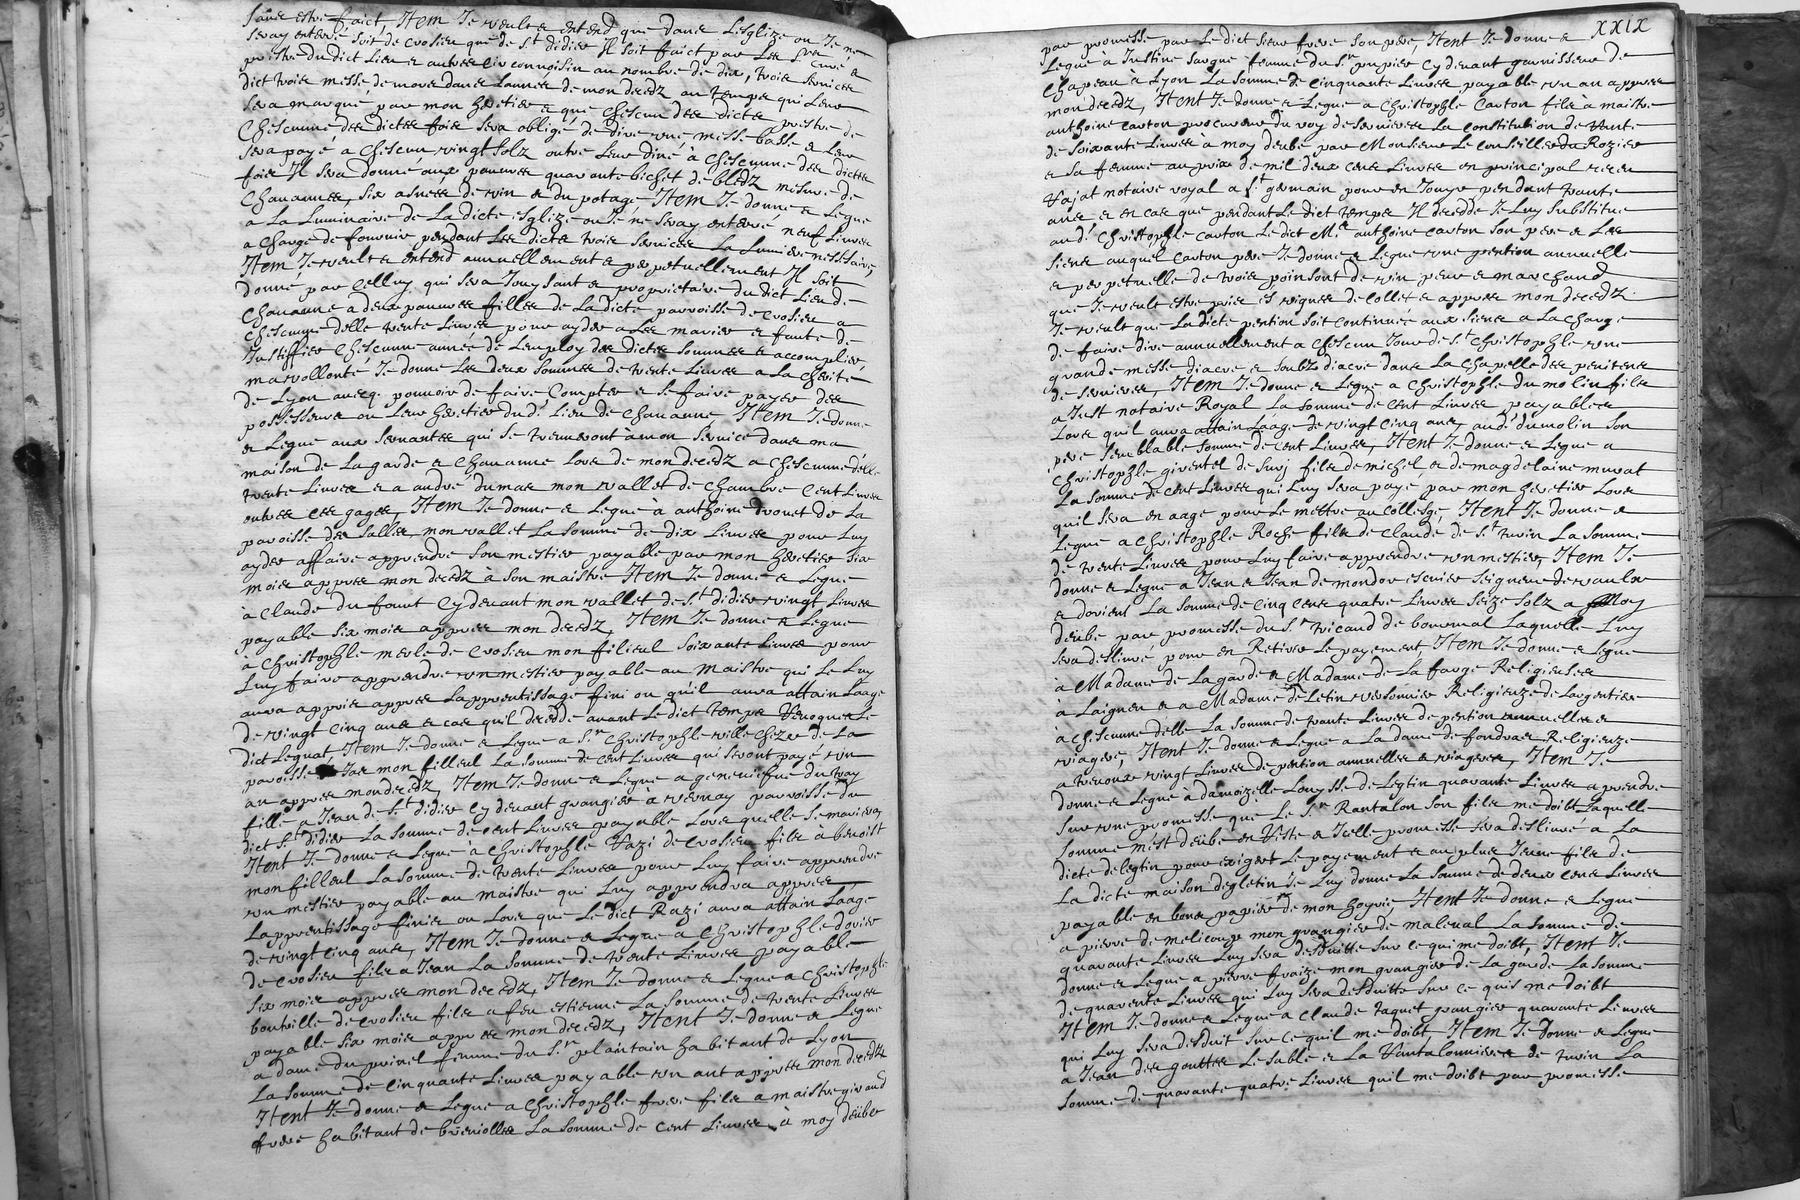 sans estre faict, Item Je veulx & entend que dans Lesglize ou Je ne
seray enterré soit de Crosieu que de St didier Il soit faict par Les Srs Curé &
prestre du dict Lieu & autres circonvoisin au nombre de dix, trois services
dict trois messe de mors dans Lannee de mon decedz au temps qui Leur
sera marqué par mon heretier & que chescun des dicts prestre de
Chescunne des dictes fois sera obligé de dire une messe basse & Leur
sera payé a chescun vingt solz outre Leur diné à chescunne des dictes
fois Il sera donné aux pauvres quarante bichet de bledz mesure de
Chavannes, six asnees de vin & du potage Item Je donne & Legue
a La Luminaire de La dicte esglize ou Je ne seray enterré neuf Livres
a Charge de fournir pendant Les dicts trois services La Lumiere nessaire,
Item Je veulx & entend annuellement & perpetuellement Il soit
donné par Celluy qui sera Jouyssant & proprietaire du dict Lieu de
Chavanne a deux pauvres filles de La dicte parroisse de Crosieu a
Chescunne delle trente Livres pour ayder a Les marier & faute de
Justiffier Chescunne année de Lemploy des dictes sommes & accomplir
ma vollonté Je donne Les deux sommes de trente Livres a La Cherité
de Lyon avecq. pouvoir de faire Compter & se faire payer des
possesseurs ou Leur heretier dud. Lieu de Chavanne Item Je donne
& Legue aux servantes qui se treuveront à mon service dans ma
maison de La garde & Chavanne Lors de mon decedz a chescunne d'elle
trente Livres & a andré dumas mon vallet de Chambre Cent Livres
outres ces gages, Item Je donne & Legue à anthoine drouet de La
paroisse des salles, mon vallet La somme de dix Livres pour Luy
ayder affaire apprendre son mestier payable par mon heretier six
mois appres mon decedz à son maistre Item Je donne & Legue
à Claude du fourt Cy devant mon vallet de St didier vingt Livres
payable six mois appres mon decedz, Item Je donne & Legue
à Christophle merle de Crosieu mon filieul soixante Livres pour
Luy faire apprendre un mestier payable au Maistre qui Le Luy
aura appris appres Lapprentissage fini ou quil aura attain Laage
de vingt Cinq ans & cas quil decedde avant Le dict temps Revoquer Le
dict Leguat, Item Je donne & Legue a Sr Christophle villechize de La
paroisse mon filleul La somme de Cent Livres qui seront payé un
an appres mon decedz, Item Je donne & Legue a genevi efve du Ray
fille a Jean de St didier Cy devant grangier à vernay parroisse du
dict St didier La somme de cent Livres payable Lors quelle se mariera
Itent Je donne & Legue à Christophle Razi de Crosieu filz à benoist
mon filleul La somme de trente Livres pour Luy faire apprendre
un mestier payable au maistre qui Luy apprendra appres
Lapprentissage finie ou Lors que Le dict Razi aura attain Laage
de vingt Cinq ans, Item Je donne & Legue a Christophle dorier
de Crosieu filz a Jean La somme de trente Livres payable
six mois appres mon decedz, Item Je donne & Legue a Christophle
bouteille de Crosieu filz a feu estienne La somme de trente Livres
payable six mois appres mon decedz, Itent Je donne & Legue
a dame du pinel femme du Sr plaintain habitant de Lyon
La somme de Cinquante Livres payable un ant appres mon decedz
Itent Je donne & Legue a Christophle frere filz a maistre giraud
frere habitant de La somme de Cent Livres à moy deübe
XXIX
par promesse par Le dict sieur frere son pere, Itent Je donne &
Legue à Justine savque femme du Sr pupier Cy devant garnisseur de
Chapeau à Lyon La somme de Cinquante Livres payable un an appres
mon decedz, Itent Je donne & Legue a Christophle Carton filz à maitre
anthoine carton procureur du roy de servieres La Constitution de rante
de soixante Livres à moy deubé par Monsieur Le Conseiller du Rozier
& sa femme au prix de mil deux cens Livres en principal receu
Rajat notaire royal a St germain pour en Jouyr pendant trante
ans & en cas que pendant Le dict temps Il decedde Je Luy substitue
aud. Christophle carton Le dict Me anthoine carton son pere & Les
siens auquel carton pere Je donne & Legue une pention annuelle
& perpetuelle de trois poinsont de vin peur & marchand
que Je veult estre pris es vignes de Colle appres mon decedz.
Je veult que La dicte pention soit continuée aux siens a La Charge
de faire dire annuellement a chescun Jour de St Christophle une
grande messe diacre & soubz diacre dans La Chapelle des penitens
de servieres, Item Je donne & Legue a Christophle dumolin filz
a Just notaire Royal La somme de Cent Livres payables
Lors quil aura attain Laage de vingt Cinq ans, aud. dumolin son
pere semblable somme de Cent Livres, Itent Je donne & Legue a
Christophle giventel de Surj filz de michel & de magdelaine murat
La somme de Cent Livres qui Luy sera payé par mon heretier Lors
quil sera en aage pour Le mettre au Collesge, Itent Je donne &
Legue a Christophle Roche filz de Claude de St turin La somme
de trente Livres pour Luy faire apprendre un mestier, Item Je
donne & Legue a Jean & Jean de mondor escuier seigneur de vaulx
& dorient La somme de Cinq Cens quatre Livres seize solz a Moy
deübe par promesse du Sr Ricaud de bournal Laquelle Luy
sera deslivré pour en Retirer Le payement Item Je donne & Legue
à Madame de La garde & Madame de La farge Religieuses
à Laigneu & a Madame de Letin versonnier Religieuze de Largentiere
a chescunne delle La somme de trante Livres de pention annuelles &
viageres, Itent Je donne & Legue a La dame de fondras Religieuze
a trevoux vingt Livres de pention annuelles & viageres, Item Je
donne & Legue à damoizelle Louysse de Legtin quarante Livres a prendre
sur une promesse que Le Sr Rantalon son filz me doibt Laquelle
somme mest deübe en Reste & Icelle promesse sera deslivré a La
dicte delegtin pour exiger Le payement & au plus Jeune filz de
La dicte maison degletin Je Luy donne La somme de deux Cens Livres
payable en bons papiers de mon hoyrie, Itent Je donne & Legue
a pierre de melicoup mon grangier de maleval La somme de
quarante Livres Luy sera desduitte sur ce qui me doibt, Itent Je
donne & Legue a pierre fraize mon grangier de La garde La somme
de quarante Livres qui Luy sera desduitte sur ce quis me doibt
Item Je donne & Legue a Claude Jaquet grangier quarante Livres
qui Luy sera desduit sur Ce quil me doibt, Item Je donne & Legue
a Jean des gouttes Le sable & La Rantalonnieres de turin La
somme de quarante quatre Livres quil me doibt par promesse